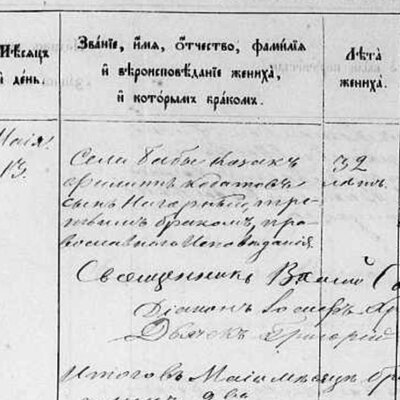 Мѣсяцъ
и день.
Званіе, имя, отчество, фамилія
и вѣроисповѣданіе жениха,
и которымъ бракомъ.
Лѣта
жениха.
Маія
13.
Села Бабы козакъ
Филиппъ
сынъ тре-
тьимъ бракомъ, пра-
вославнаго Исповѣданія.
32
лѣтъ.
Священникъ
Діаконъ Іосифъ
Дьячекъ Григорій
Итого въ Маіѣ мѣсяцѣ бра